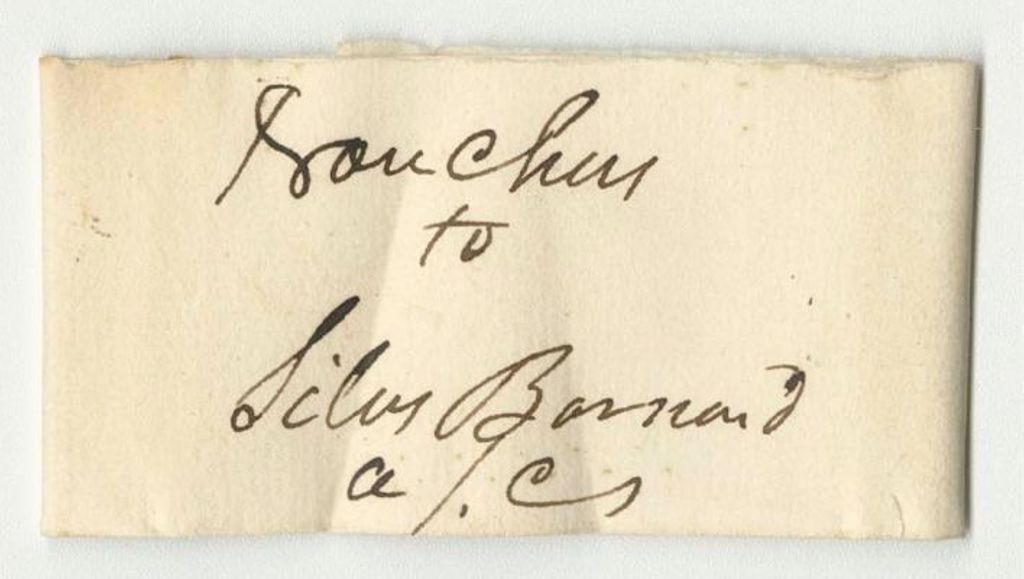 Vouchers
to
Silas Barnard
a/. cs